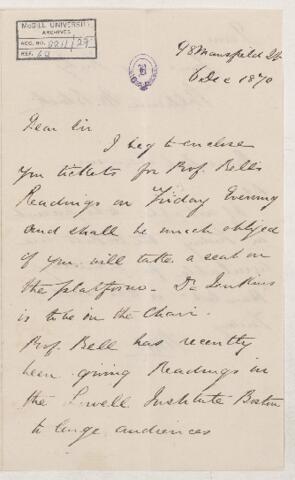 McGILL UNIVERSITY
ARCHIVES
ACC. NO.
REF.
98 Mansfield St
6 Dec 1870
Dear Sir
I beg to enclose
you tickets for Prof. Bells
Readings on Friday Evening
and shall be much obliged
if you will take a seat on
the platform - Dr Jenkins
is to be in the Chair.
Prof. Bell has recently
been giving Readings in
the Lowell Institute Boston
to large audiences